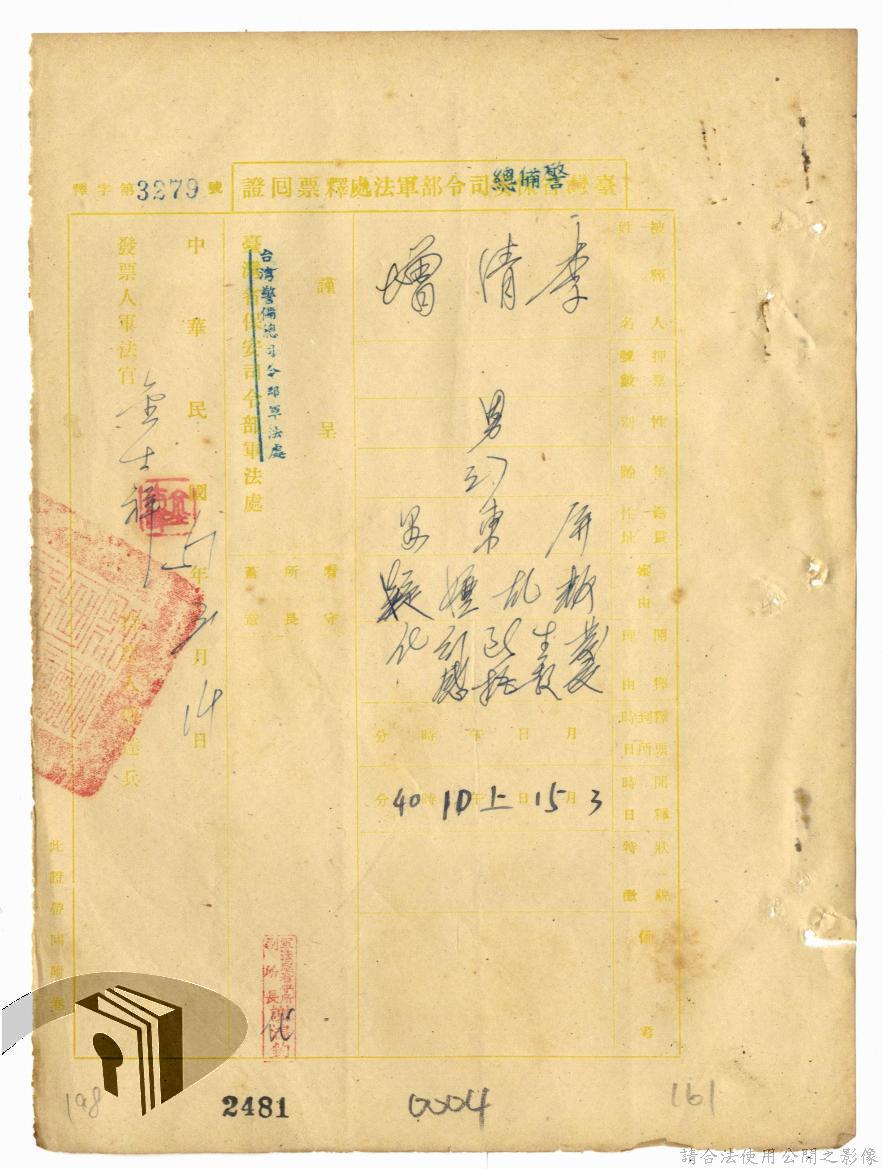 釋字第3279號
臺灣省保安司令部軍法處釋票回證
警備總
被釋人姓名
李清增
押票號數
性別
男
年齡
27
籍貫住址
屏東
案由
叛亂嫌疑
開釋理由
感化
釋票到所時日
月 日 午 時 分
開釋時日
3月15日上午10時40分
狀貌特徵
備考
謹呈
臺灣省保安司令部軍法處
台湾警備總司令部軍法處
看守所所長
蓋章
中華民國51年3月14日
發票人軍法官
此證帶回附卷
軍法處看守所
副所長
198
2481
0004
161
請合法使用公開之影像